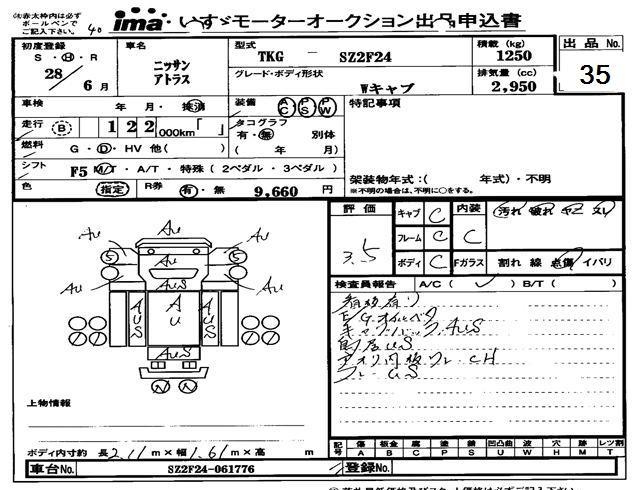 ④赤太枠内は必ず
ボールペンで
ご記入下さい。
40
ima いすゞモーターオークション出品申込書
初度登録
S・H・R
28 / 6 月
車名
ニッサン
アトラス
型式
TKG － SZ2F24
積載 (kg)
1250
グレード・ボディ形状
Wキャブ
排気量 (cc)
2,950
出品 No.
35
車検 年 月・抹消
装備 AC PS PW
特記事項
走行 B 122,000km「 」
タコグラフ
有・無 別体
( 年 月)
燃料 G・D・HV 他( )
シフト F5 M/T・A/T・特殊 (2ペダル・3ペダル)
架装物年式：( 年式)・不明
※不明の場合は、不明に○をする。
色 指定 R券 有・無 9,660 円
評価 3.5
キャブ C
フレーム C
ボディ C
内装 C
汚れ 破れ ヤニ ヌレ
Fガラス 割れ 線 点傷 イバリ
検査員報告 A/C ( ✓ ) B/T ( )
AU AU AU
5 5
AU AUS AU
AUS AU AUS
AUS
上物情報
ボディ内寸約 長 2.11 m×幅 1.61 m×高 m
記号 傷 板金 腐 塗 錆 凹凸曲 波 穴 跡 レツ割
A B C P S U W H M T
車台No. SZ2F24-061776 登録No.